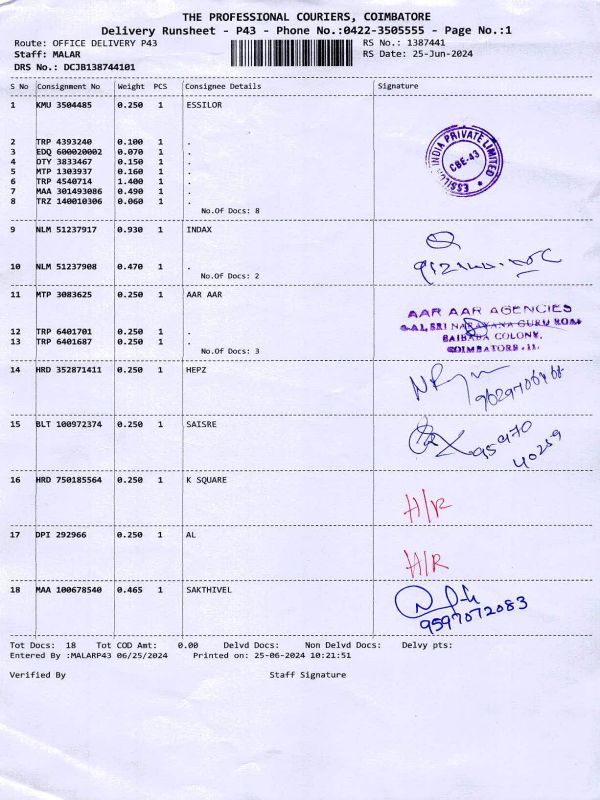 THE PROFESSIONAL COURIERS, COIMBATORE
Delivery Runsheet - P43 - Phone No.:0422-3505555 - Page No.:1
Route: OFFICE DELIVERY P43 RS No.: 1387441
Staff: MALAR RS Date: 25-Jun-2024
DRS No.: DCJB138744101
S No Consignment No Weight PCS Consignee Details Signature
1 KMU 3504485 0.250 1 ESSILOR
ESSILOR INDIA PRIVATE LIMITED
CBE-43
2 TRP 4393240 0.100 1 .
3 EDQ 600020002 0.070 1 .
4 DTY 3833467 0.150 1 .
5 MTP 1303937 0.160 1 .
6 TRP 4540714 1.400 1 .
7 MAA 301493086 0.490 1 .
8 TRZ 140010306 0.060 1 .
No.Of Docs: 8
9 NLM 51237917 0.930 1 INDAX
10 NLM 51237908 0.470 1 .
No.Of Docs: 2
11 MTP 3083625 0.250 1 AAR AAR
AAR AAR AGENCIES
SRI NARAYANA GURU ROAD
SAIBABA COLONY,
COIMBATORE - 11.
12 TRP 6401701 0.250 1 .
13 TRP 6401687 0.250 1 .
No.Of Docs: 3
14 HRD 352871411 0.250 1 HEPZ
15 BLT 100972374 0.250 1 SAISRE
95970
40259
16 HRD 750185564 0.250 1 K SQUARE
H/R
17 DPI 292966 0.250 1 AL
H/R
18 MAA 100678540 0.465 1 SAKTHIVEL
9597072083
Tot Docs: 18 Tot COD Amt: 0.00 Delvd Docs: Non Delvd Docs: Delvy pts:
Entered By :MALARP43 06/25/2024 Printed on: 25-06-2024 10:21:51
Verified By Staff Signature